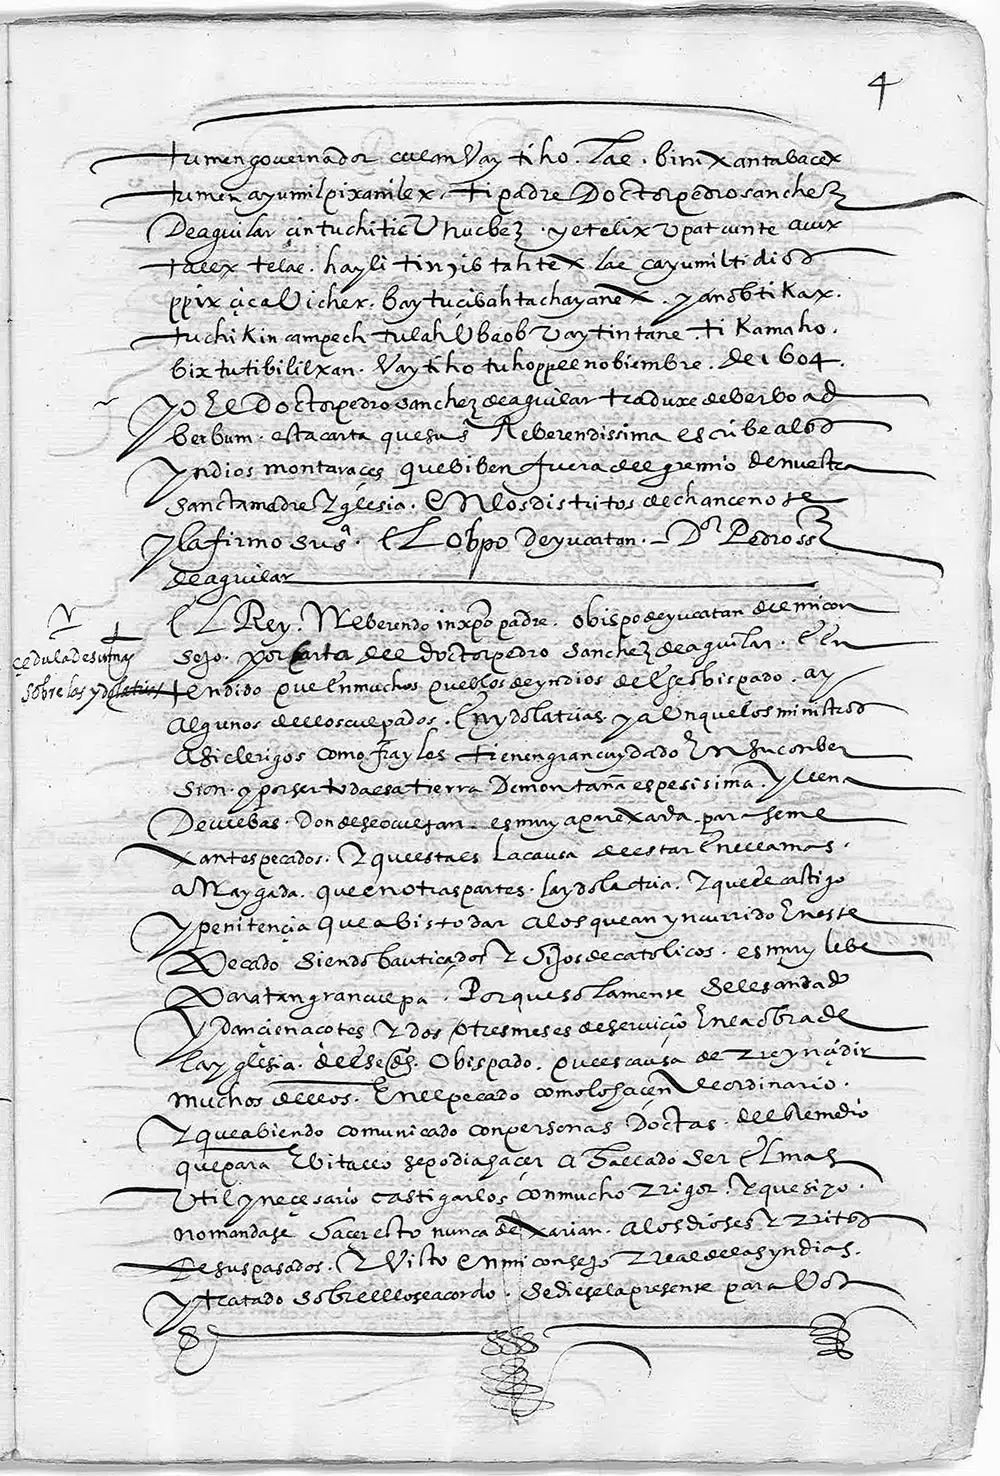 4
tumen governador culan Vay tiho. lae. bin i xan tabacex
tumen ca yumilpixanilex. ti padre Doctor pedro sanchez
De aguilar çin tuchitic U hucbez. yetelix U patcunte auux
tacex telae. hayli tin ɔib tah tex. lae ca yumilti diós
ppix çica Vicher. bay tucibah tachayanex. yanob ti Kax.
tuchiKin campech tulah U baob Vay tin tane ti Kamaho.
bix tutibililxan. Vay tiho tu hoppel nobiembre. de 1604.
yo el Doctor pedro sanchez de aguilar traduxe de berbo ad
berbum. esta carta que su sª Reberendissima escribe a los
yndios montaraçes que biben fuera del gremio de nuestra
sancta madre Yglesia. En los distritos de chancenote
y la firmo su sª. El obpo de yucatan. Dor Pedro ssz
de aguilar
El Rey. Reberendo in xpo padre. obispo de yucatan de mi con
cedula de su mag
sejo. por carta del doctor pedro sanchez de aguilar. E en
sobre las ydolatrias
tendido que En muchos pueblos de yndios de Ese obispado. ay
Algunos dellos culpados. En ydolatrias y aUnque los ministros
Asi clerigos como frayles tienen gran cuydado En su conber
sion. y por ser toda esa tierra De montaña espesisima. y llena
De cuebas. Donde se ocultan. es muy aparexada para seme
xantes pecados. Y que esta es la causa de estar En ellamas.
aRaygada. que en otras partes. la ydolatria. Y que el castigo
y penitençia que a bisto dar a los que an yncurrido En este
Pecado siendo bauticados Y Hijos de catolicos. es muy lebe
Para tan gran culpa. Porque solamente se les anda d
y dan cien açotes Y dos o tres meses de serviçio En la obra de
la yglesia. de Ese dho. Obispado. que es causa de rreynçidir
muchos dellos. En el pecado como lo haçen de ordinario.
Y que abiendo comunicado con personas Doctas del Remedio
que para Evitallo se podia haçer a hallado ser El mas
Util y neçesario castigarlos con mucho rrigor. Y que si yo.
no mandase haçer esto nunca dexarian. a los dioses Y rritos
de sus pasados. Y Visto En mi consejo rreal de las yndias.
y tratado sobre ello se acordo. se diese la presente para Vos